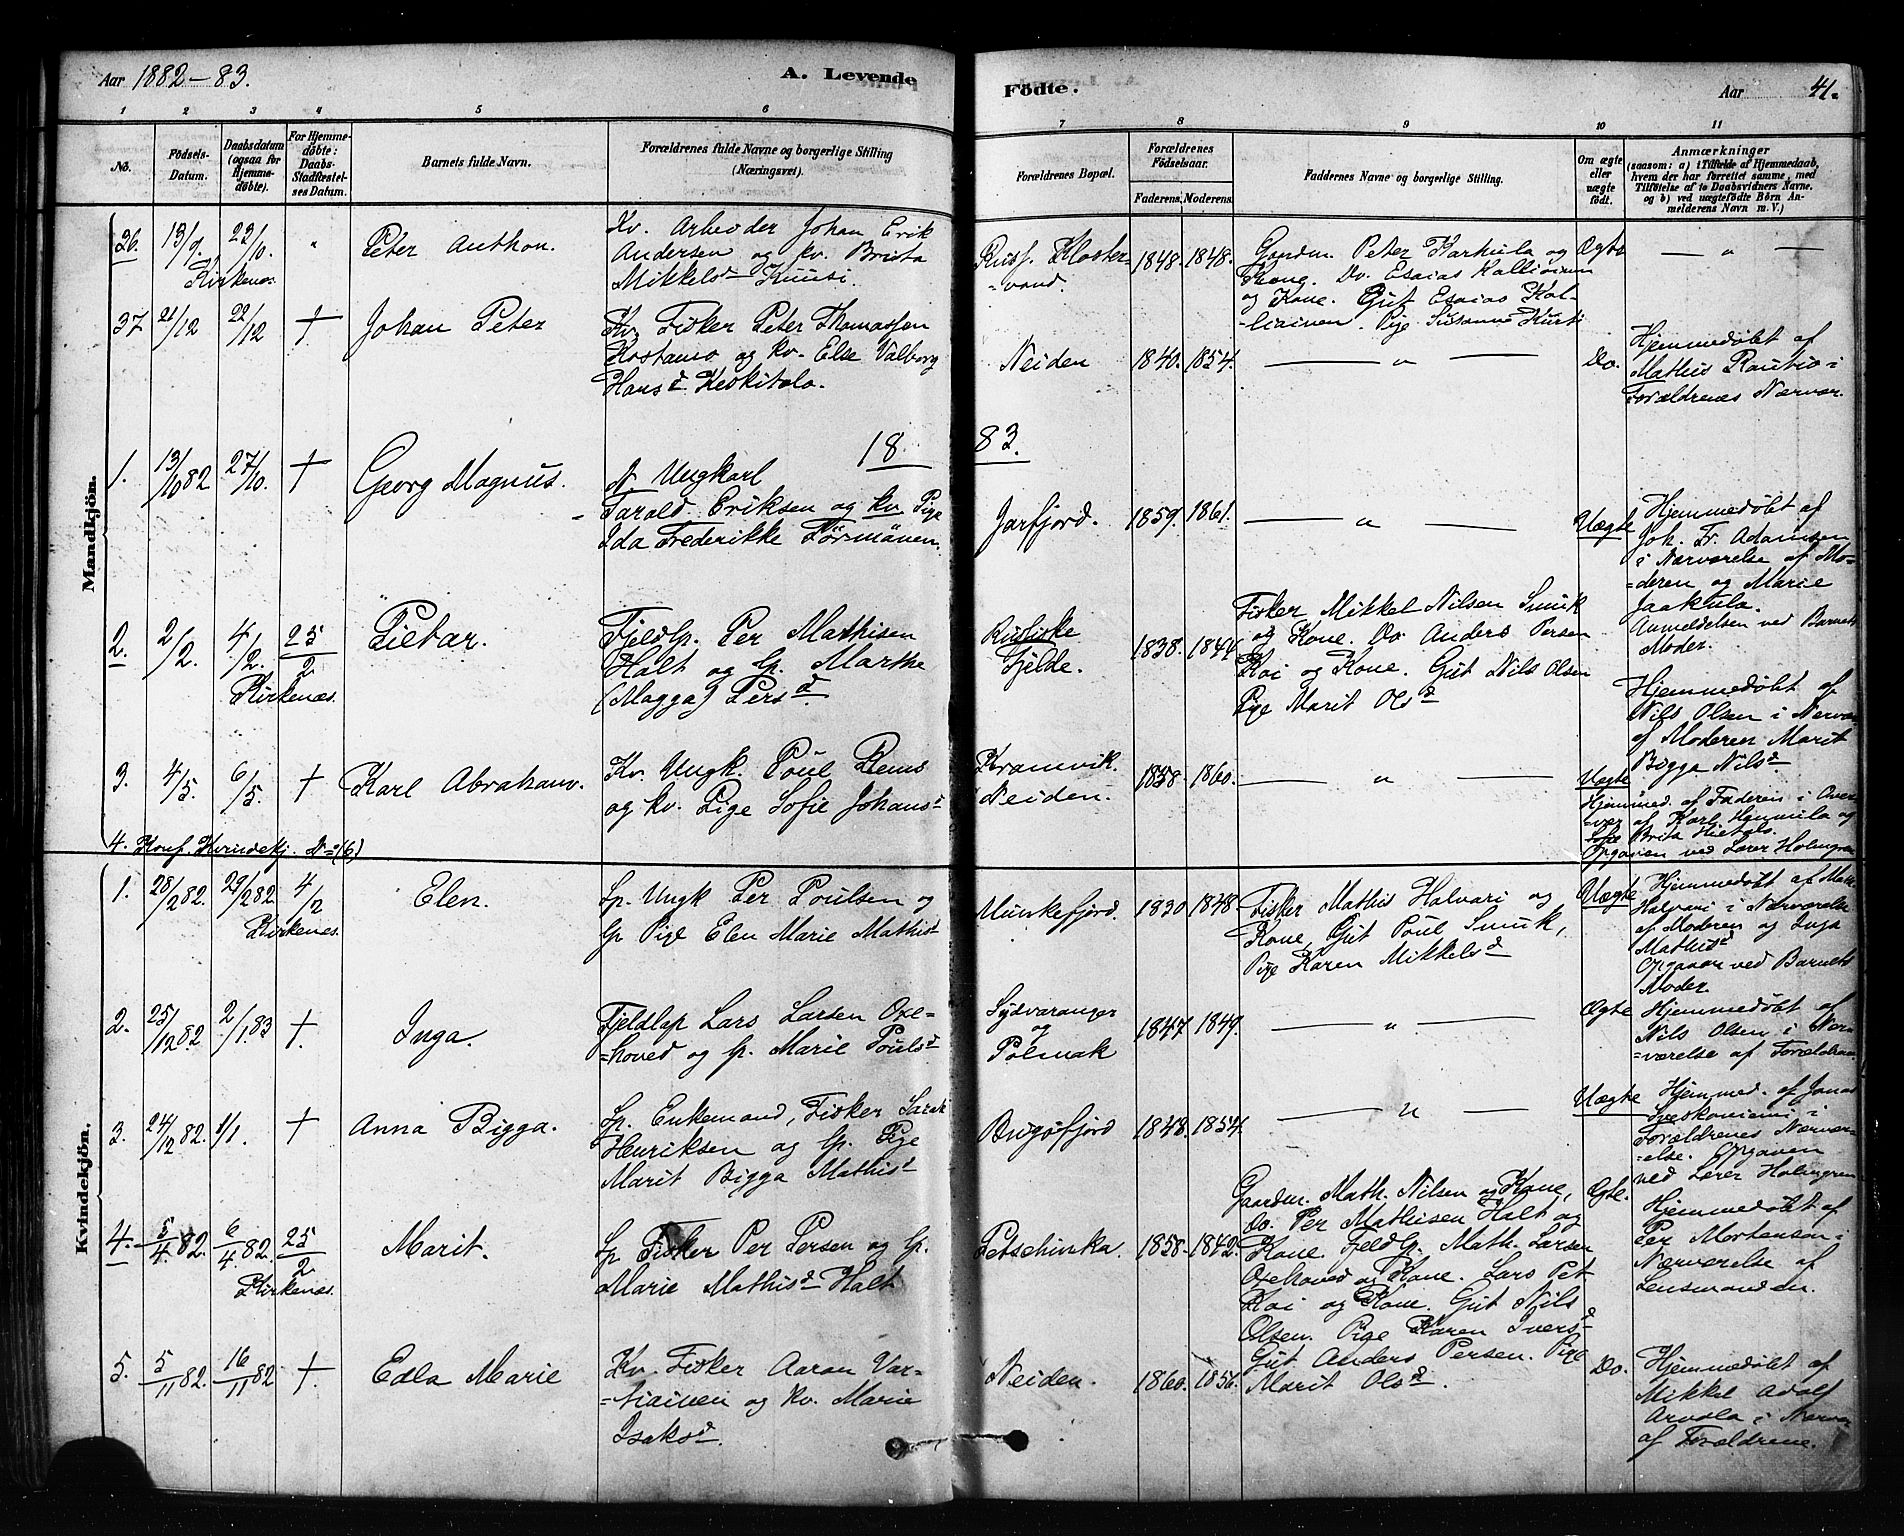 Aar 1882-83.
A. Levende
Födte.
Aar
41.
1 2 3 4 5 6 7 8 9 10 11
No.
Födsels-
Datum.
Daabsdatum
(ogsaa for
Hjemme-
döbte).
For Hjemme-
döbte:
Daabs-
Stadfæstel-
ses Datum.
Barnets fulde Navn.
Forældrenes fulde Navne og borgerlige Stilling
(Næringsvei).
Forældrenes Bopæl.
Forældrenes
Födselsaar.
Faderens. Moderens.
Faddernes Navne og borgerlige Stilling.
Om ægte
eller
uægte
födt.
Anmærkninger
(saasom: a) i Tilfælde af Hjemmedaab,
hvem der har forrettet samme, med
Tilföielse af to Daabsvidners Navne.
og b) ved uægtefödte Börn An-
melderens Navn m. V.)
Mandkjön.
36. 13/9 22/10. "
Kirkenæs
Peter Anthon.
Kv. Arbeider Johan Erik
Andersen og kv. Brita
Mikkelsd Kuusi.
Russ. Kloster-
-vand.
1848. 1848.
Gaardm. Peter Karkula og
Kone. Do. Esaias
og Kone. Gut Esaias Kal-
-liainen. Pige Susanna Kurti
Ægte
— " —
37 21/12 22/12 †
Johan Peter
Kv. Fisker Peter Thomassen
Rostamo og kv. Else Valborg
Hansd Keskitalo.
Neiden
1840. 1854.
— " —
Do.
Hjemmedøbt af
Mathis Rautio i
Forældrenes Nærvær.
1883.
1. 13/10 82 27/10. †
Georg Magnus.
N. Ungkarl
Tarald Eriksen og kv. Pige
Ida Frederikke Förmänen.
Jarfjord.
1859. 1861.
— " —
Uægte
Hjemmedøbt af
Joh. Fr. Adamsen
i Nærværelse af Mo-
-deren og Marie
Jaakkula.
Anmeldelsen ved Barnets
Moder.
2. 2/2. 4/2. 25/2
Kirkenæs.
Pietar.
Fjeldlp. Per Mathisen
Halt og lp. Marthe
(Magga) Persd.
Russiske
Fjelde.
1838. 1844
Fisker Mikkel Nilsen Smuk
og Kone. Do Anders Persen
Koi og Kone. Gut Nils Olsen
Pige Marit Olsd
Hjemmedøbt af
Nils Olsen i Nærvær
af Moderen Marit
Bigga Nilsd
3. 4/5. 6/5. †
Karl Abraham.
Kv. Ungk. Poul Rems
og kv. Pige Sofie Johansd
Kramvik.
Neiden.
1858. 1860.
— " —
Uægte
Hjemmed. af Faderen i Over-
-vær af Karl Hannula og
Brita Hietala.
Opgaven ved Lærer Holmgren
4. Konf. Kvindekj. No (6)
Kvindekjön.
1. 28/2 82. 29/2 82 4/2
Kirkenæs.
Elen.
Lp. Ungk Per Poulsen og
lp Pige Elen Marie Mathisd
Munkefjord.
1830 1848
Fisker Mathis Halvari og
Kone, Gut Poul Smuk,
Pige Karen Mikkelsd
Uægte
Hjemmedøbt af Math.
Halvari i Nærværelse
af Moderen og Inga
Mathisd
Opgaven ved Barnets
Moder.
2. 25/12 82. 2/1 83 †
Inga.
Fjeldlap Lars Larsen Oxe-
-hoved og lp. Marie Poulsd
Sydvaranger
og
Polmak
1847. 1849.
— " —
Ægte
Hjemmedøbt af
Nils Olsen i Nær-
-værelse af Forældrene
3. 24/12 82. 1/1. †
Anna Bigga.
Lp. Enkemand, Fisker Isak
Henriksen og lp. Pige
Marit Bigga Mathisd
Bugøfjord
1848. 1854.
— " —
Uægte
Hjemmed. af Jonas
i
Forældrenes Nærvær-
-else. Opgaven
ved Lærer Holmgren
4. 5/4 82. 6/4 82. 25/2
Kirkenæs.
Marit.
Lp Fisker Per Persen og lp.
Marie Mathisd Halt
Petschinka.
1858. 1842.
Gaardm. Math. Nilsen og Kone,
Do. Per Mathisen Halt og
Kone. Fjeldlp. Math. Larsen
Oxehoved og Kone. Lars Pet
Koi og Kone. Gut Nils
Olsen. Pige Karen Iversd
Gut Anders Persen. Pige
Marit Olsd.
Ægte.
Hjemmedøbt af
Per Mortensen i
Nærværelse af
Lensmanden.
5. 5/11 82. 16/11 82 †.
Edla Marie
Kv. Fisker Aaron Var-
-tiainen og kv. Marie
Isaksd.
Neiden.
1860. 1856.
Do.
Hjemmedøbt af
Mikkel Adolf
Arvola i Nærvær
af Forældrene.